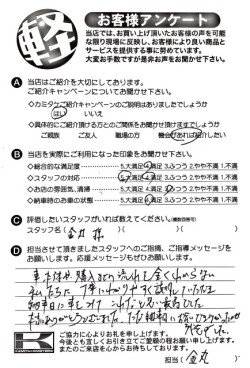 軽
お客様アンケート
当店では、お買い上げ頂いたお客様の声を可能
な限り現場に反映し、お客様により良い商品と
サービスを提供する事に努めています。
大変お手数ですが是非お声をお聞かせ下さい。
A 当店はご紹介を大切にしております。
ご紹介キャンペーンについてお聞かせ下さい。
◇カミタケご紹介キャンペーンのご説明はありましたでしょうか
はい いいえ
◇具体的にご紹介頂ける方とのご関係をお聞かせ頂けますでしょうか
ご親族 ご友人 職場の方 機会があれば紹介したい
B 当店を実際にご利用になった印象をお聞かせ下さい。
◇総合的な満足度 5.大満足 4.満足 3.ふつう 2.やや不満 1.不満
◇スタッフの対応 5.大満足 4.満足 3.ふつう 2.やや不満 1.不満
◇お店の雰囲気、清掃 5.大満足 4.満足 3.ふつう 2.やや不満 1.不満
◇納車時のお車の状態 5.大満足 4.満足 3.ふつう 2.やや不満 1.不満
C 評価したいスタッフがいれば教えてください。(複数回答可)
スタッフ名( 金井様 )( )( )
D 担当させて頂きましたスタッフへのご指摘、ご指導メッセージを
お願いします。応援メッセージもぜひお願いします。
車本体や購入までの流れを全くわからない
私たちに丁寧にわかりやすく説明していただき
納車日に
ありがとうございました。
ご協力に心よりお礼を申し上げます。
今後とも宜しくお引き立てご愛顧の程お願い申し上げます。
またのご来店を心からお待ちしております。
担当( 金丸 )